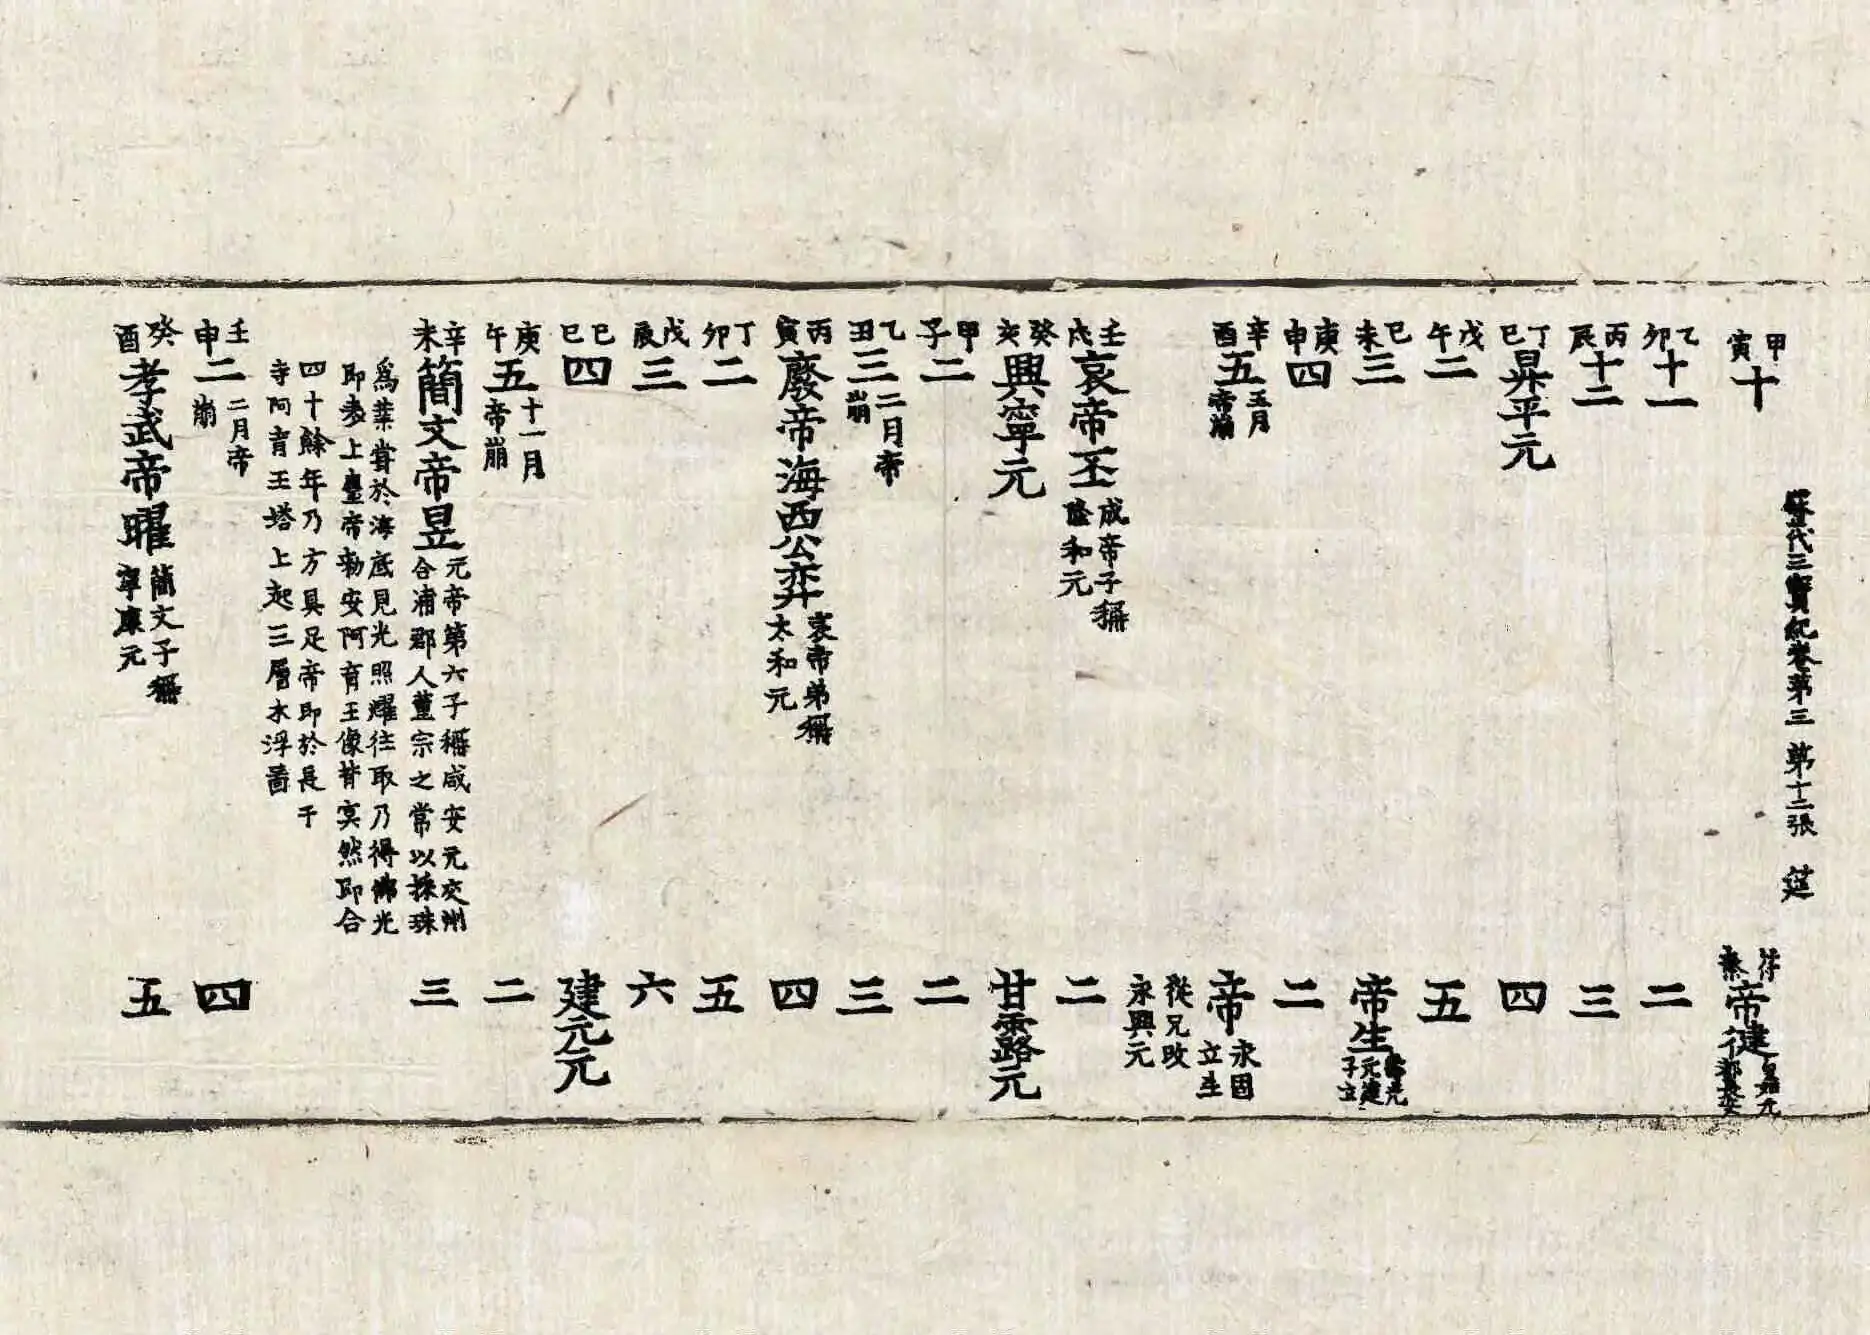 甲寅十
苻秦帝健皇始元都長安
歷代三寶紀卷第三 第十二張 莚
乙卯十一
二
丙辰十二
三
丁巳昇平元
四
戊午二
五
己未三
帝生
子立
庚申四
二
辛酉五五月帝崩
帝永固立生
從兄改永興元
壬戌哀帝丕成帝子稱隆和元
二
癸亥興寧元
甘露元
甲子二
二
乙丑三二月帝崩
三
丙寅廢帝海西公弈哀帝弟稱太和元
四
丁卯二
五
戊辰三
六
己巳四
建元元
庚午五十一月帝崩
二
辛未簡文帝昱元帝第六子稱咸安元交州
合浦郡人董宗之常以採珠
三
爲業嘗於海底見光照耀往取乃得佛光
即表上臺帝勑安阿育王像背宾然即合
四十餘年乃方具足帝即於長干
寺阿育王塔上起三層木浮啚
壬申二二月帝崩
四
癸酉孝武帝曜簡文子稱寧康元
五